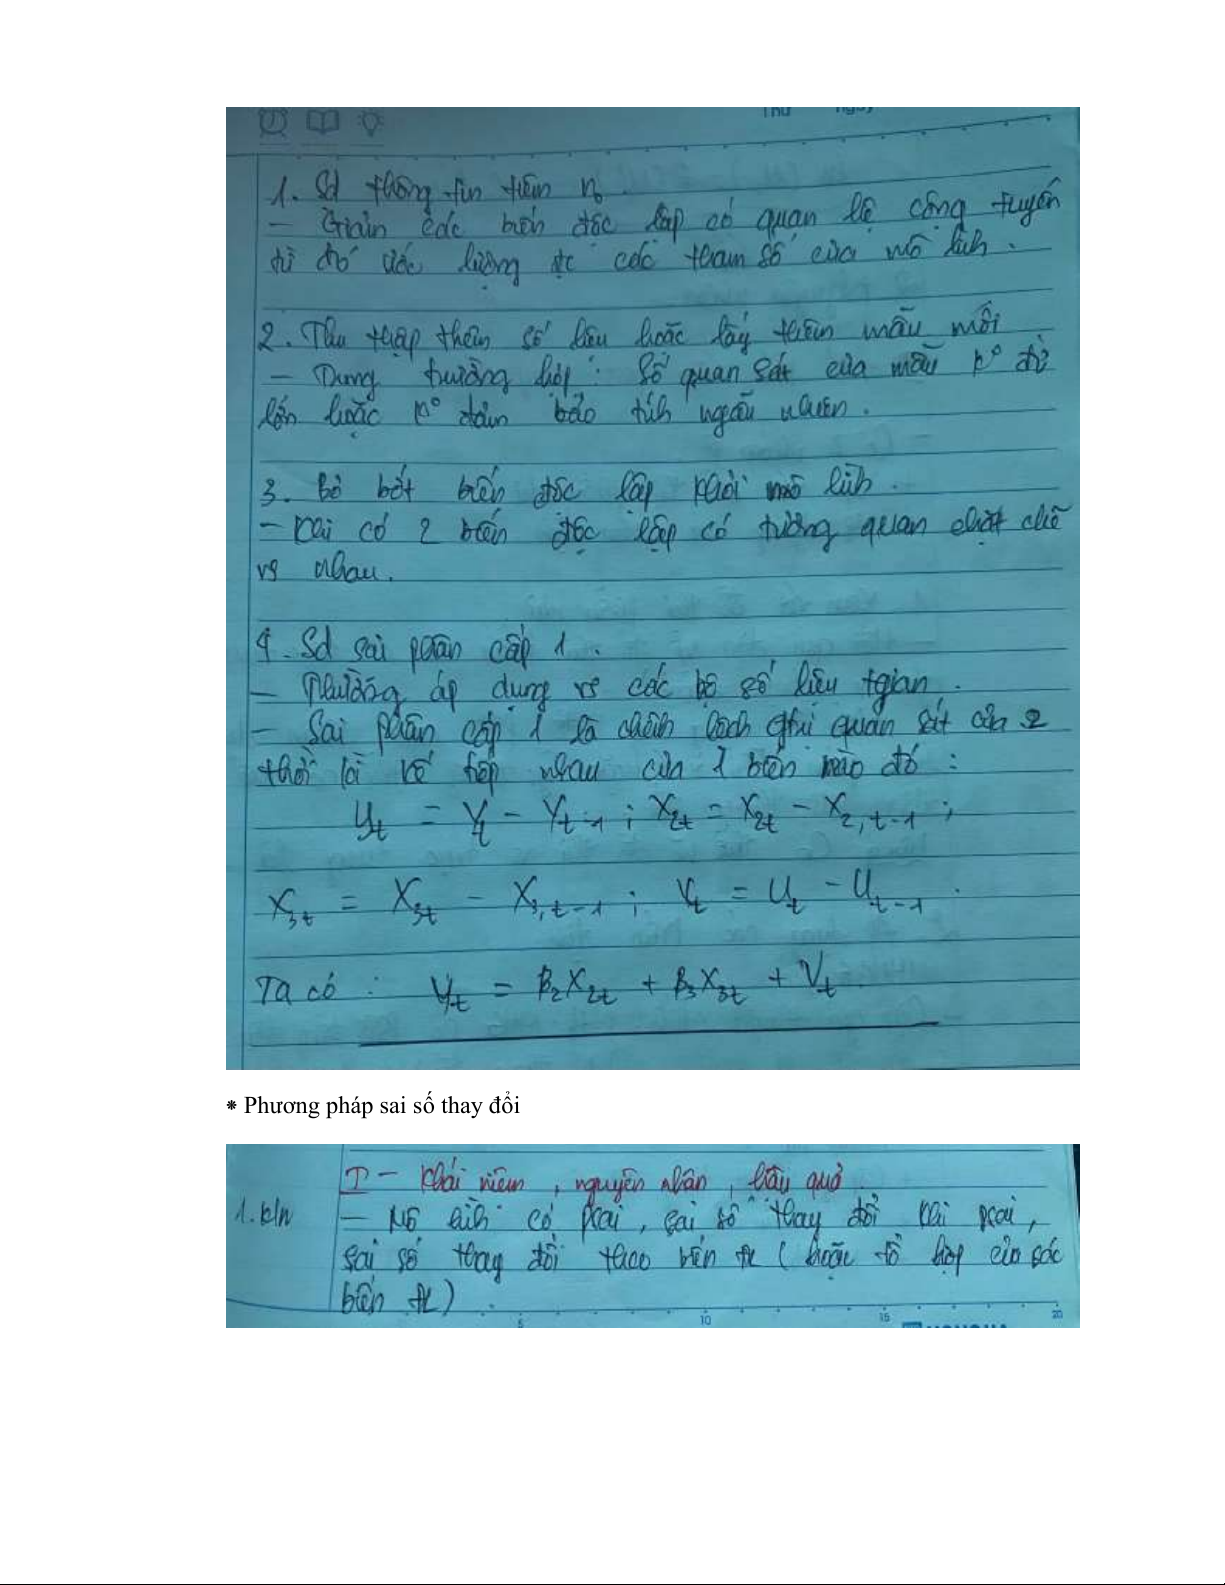 Thứ Ngày
1. Sd thông tin tiên n₀.
- Giản các biến độc lập có quan hệ cộng tuyến
từ đó ước lượng đc các tham số của mô hình.
2. Thu thập thêm số liệu hoặc lấy thêm mẫu mới
- Trong trường hợp : số quan sát của mẫu k° đủ
lớn hoặc k° đảm bảo tính ngẫu nhiên.
3. Bỏ bớt biến độc lập khỏi mô hình.
- Khi có 2 biến độc lập có tương quan chặt chẽ
vs nhau.
4. Sd sai phân cấp 1.
- Thường áp dụng vs các bộ số liệu tgian.
- Sai phân cấp 1 là chênh lệch ghi quan sát của 2
thời kì kế tiếp nhau của 1 biến nào đó :
yₜ = Yₜ - Yₜ₋₁ ; x₂ₜ = X₂ₜ - X₂,ₜ₋₁ ;
x₃ₜ = X₃ₜ - X₃,ₜ₋₁ ; Vₜ = Uₜ - Uₜ₋₁.
Ta có : yₜ = β₂x₂ₜ + β₃x₃ₜ + Vₜ
* Phương pháp sai số thay đổi
I - Khái niệm, nguyên nhân, hậu quả
1. k/n - Mô hình có psai, sai số thay đổi khi psai,
sai số thay đổi theo biến đl (hoặc tổ hợp của các
biến đl).
5 10 15 20